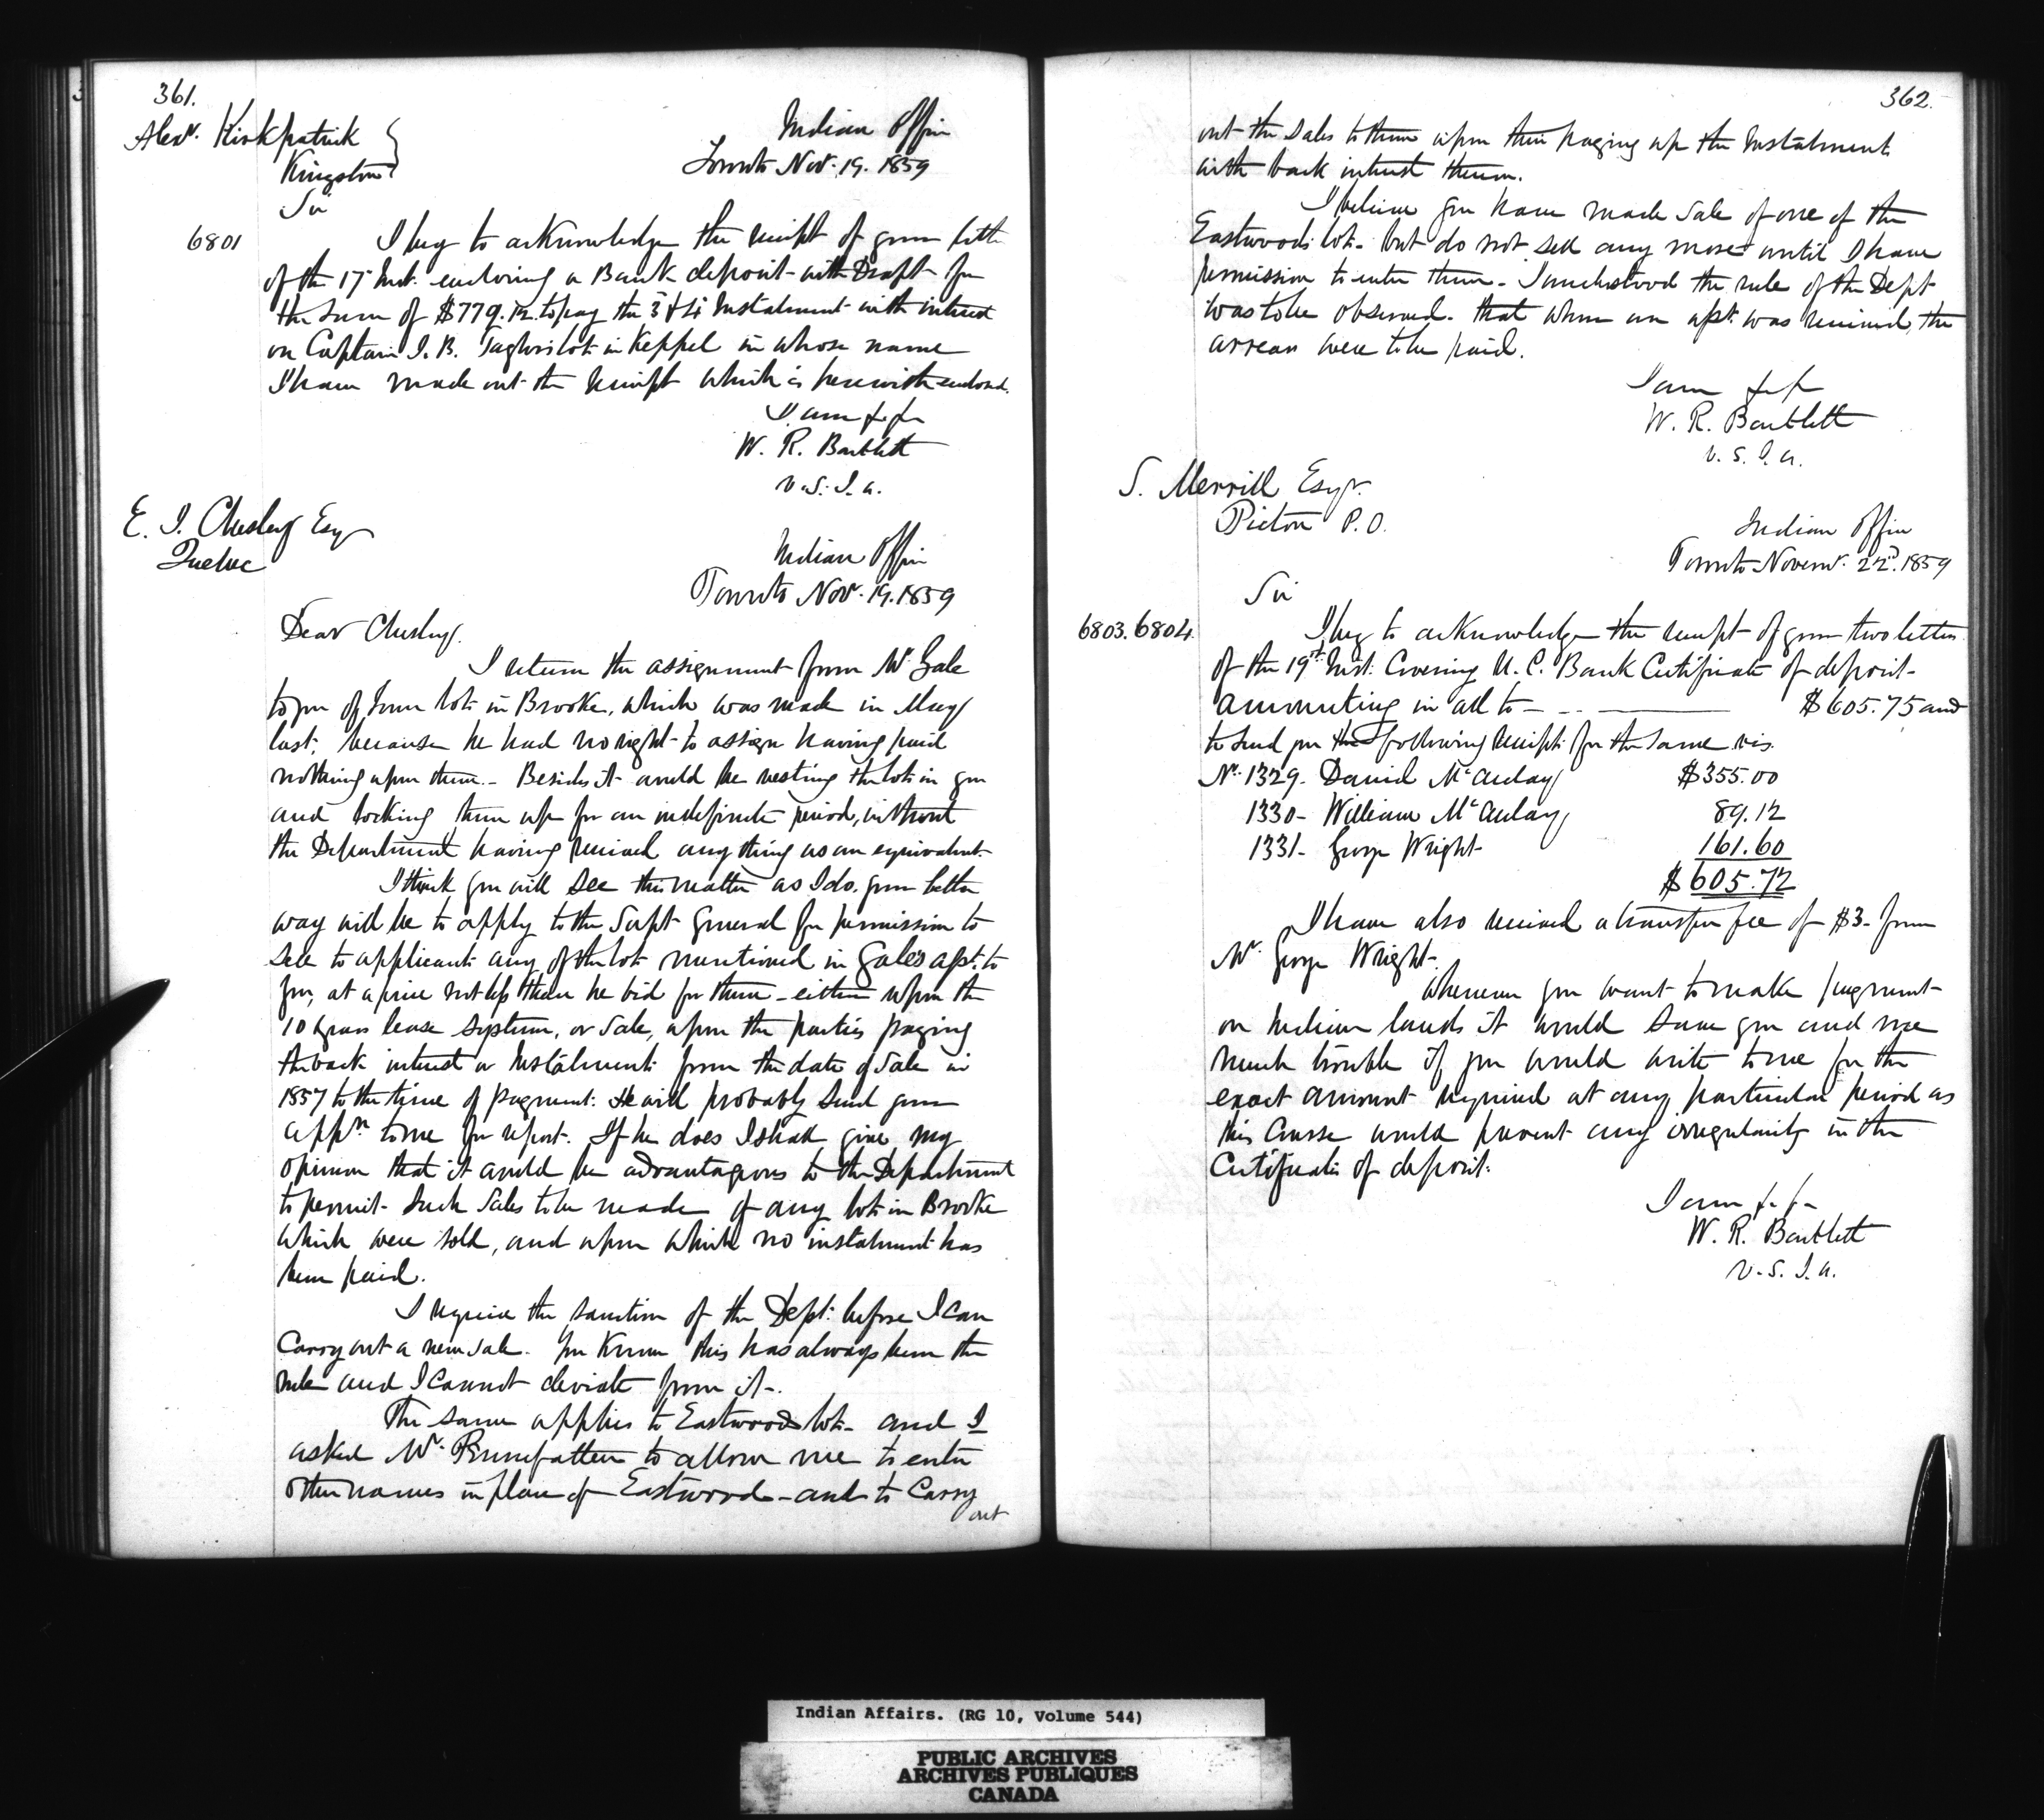 361.
Alexr. Kirkpatrick
Kingston
Indian Office
Toronto Nov. 19. 1859
Sir
6801
I beg to acknowledge the receipt of your letter
of the 17th Inst. enclosing a Bank deposit with Draft for
the sum of $779.12. to pay the 3 & 4 Instalment with interest
on Captain I. B. Taylor's lots in Keppel in whose name
I have made out the receipt which is herewith enclosed.
I am &c &c
W. R. Bartlett
V. S. I. A.
E. I. Chesley Esq
Quebec
Indian Office
Toronto Nov. 19. 1859
Dear Chesley.
I return the assignment from Mr. Gale
to you of four lots in Brooke, which was made in May
last, because he had no right to assign having paid
nothing upon them. - Besides it would be vesting the lots in you
and locking them up for an indefinite period, without
the Department having received any thing as an equivalent.
I think you will see this matter as I do. your better
way will be to apply to the Supt General for permission to
sell to applicants any of the lots mentioned in Gale's apt. to
you, at a price not less than he bid for them - either upon the
10 years lease system, or sale, upon the parties paying
the back interest or Instalments from the date of Sale in
1857 to the time of payment: He will probably send your
appn. to me for report. If he does I shall give my
opinion that it would be advantageous to the Department
to permit such sales to be made of any lots in Brooke
which were sold, and upon which no instalment has
been paid.
I require the sanction of the Dept. before I can
Carry out a new sale. You know this has always been the
rule and I cannot deviate from it -.
The same applies to Eastwoods lots - and I
asked Mr. Pennefather to allow me to enter
other names in place of Eastwood - and to carry
out
362.
out the sales to them upon their paying up the Instalment
with back interest thereon.
I believe you have made sale of one of the
Eastwoods lots - but do not sell any more until I have
permission to enter them - I understood the rule of the Dept
was to be observed. that when an apt. was received, the
arrears were to be paid.
I am &c &c
W. R. Bartlett
V. S. I. A.
S. Merrill Esqr.
Picton P.O.
Indian Office
Toronto Novemr. 22d. 1859
Sir
6803. 6804
I beg to acknowledge the receipt of your two letters
of the 19th Inst. Covering U. C. Bank Certificate of deposit
amounting in all to - - - $605.75 and
to send you the following receipts for the same viz.
No. 1329 - David McAulay $355.00
1330 - William McAulay 89.12
1331 - George Wright 161.60
$605.72
I have also received a transfer fee of $3 - from
Mr. George Wright.
Whenever you want to make payment
on Indian lands it would save you and me
much trouble if you would write to me for the
exact amount required at any particular period as
this course would prevent any irregularity in the
Certificates of deposit.
I am &c &c
W. R. Bartlett
V. S. I. A.
Indian Affairs. (RG 10, Volume 544)
PUBLIC ARCHIVES
ARCHIVES PUBLIQUES
CANADA